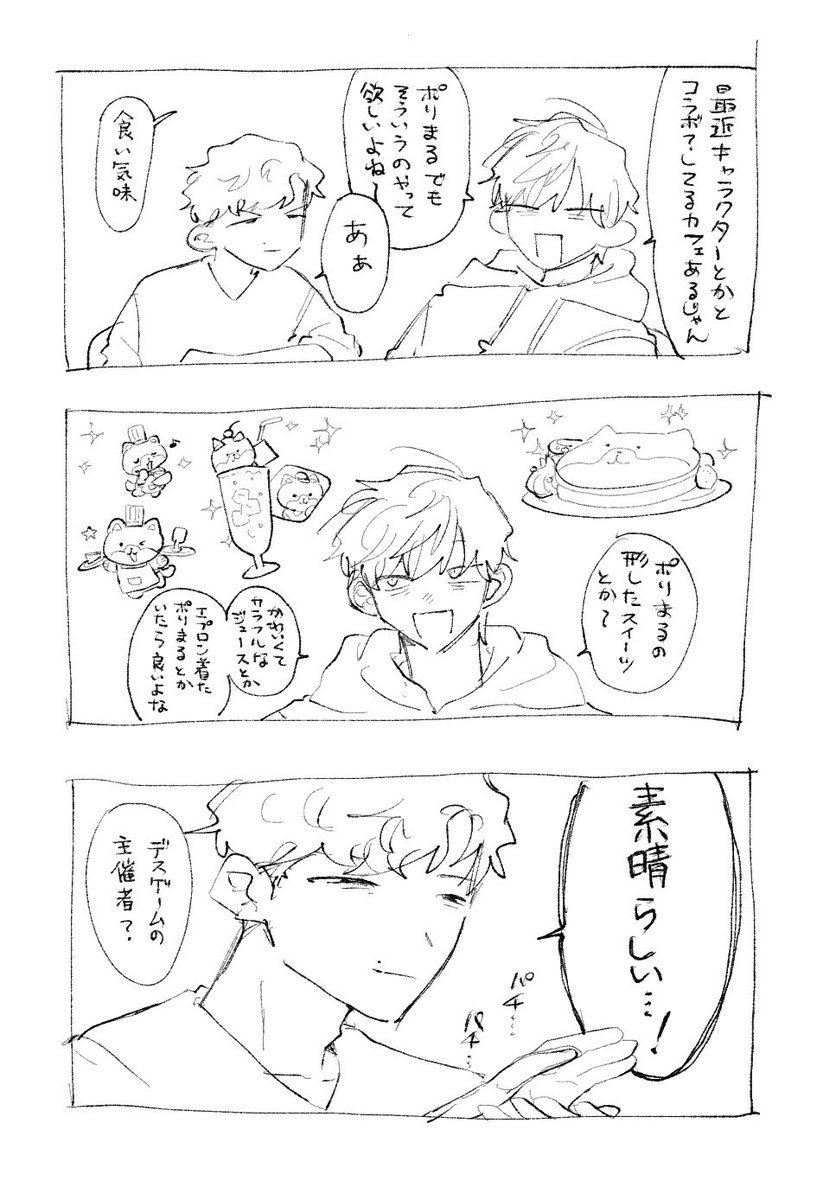 最近キャラクターとかと
コラボ？してるカフェあるじゃん
ポリまるでも
そういうのやって
欲しいよね
あぁ
食い気味
ポリまるの
形したスイーツ
とか？
かわいくて
カラフルな
ジュースとか
エプロン着た
ポリまるとか
いたら良いよな
素晴らしい…！
パチ…
パチ…
デスゲームの
主催者？